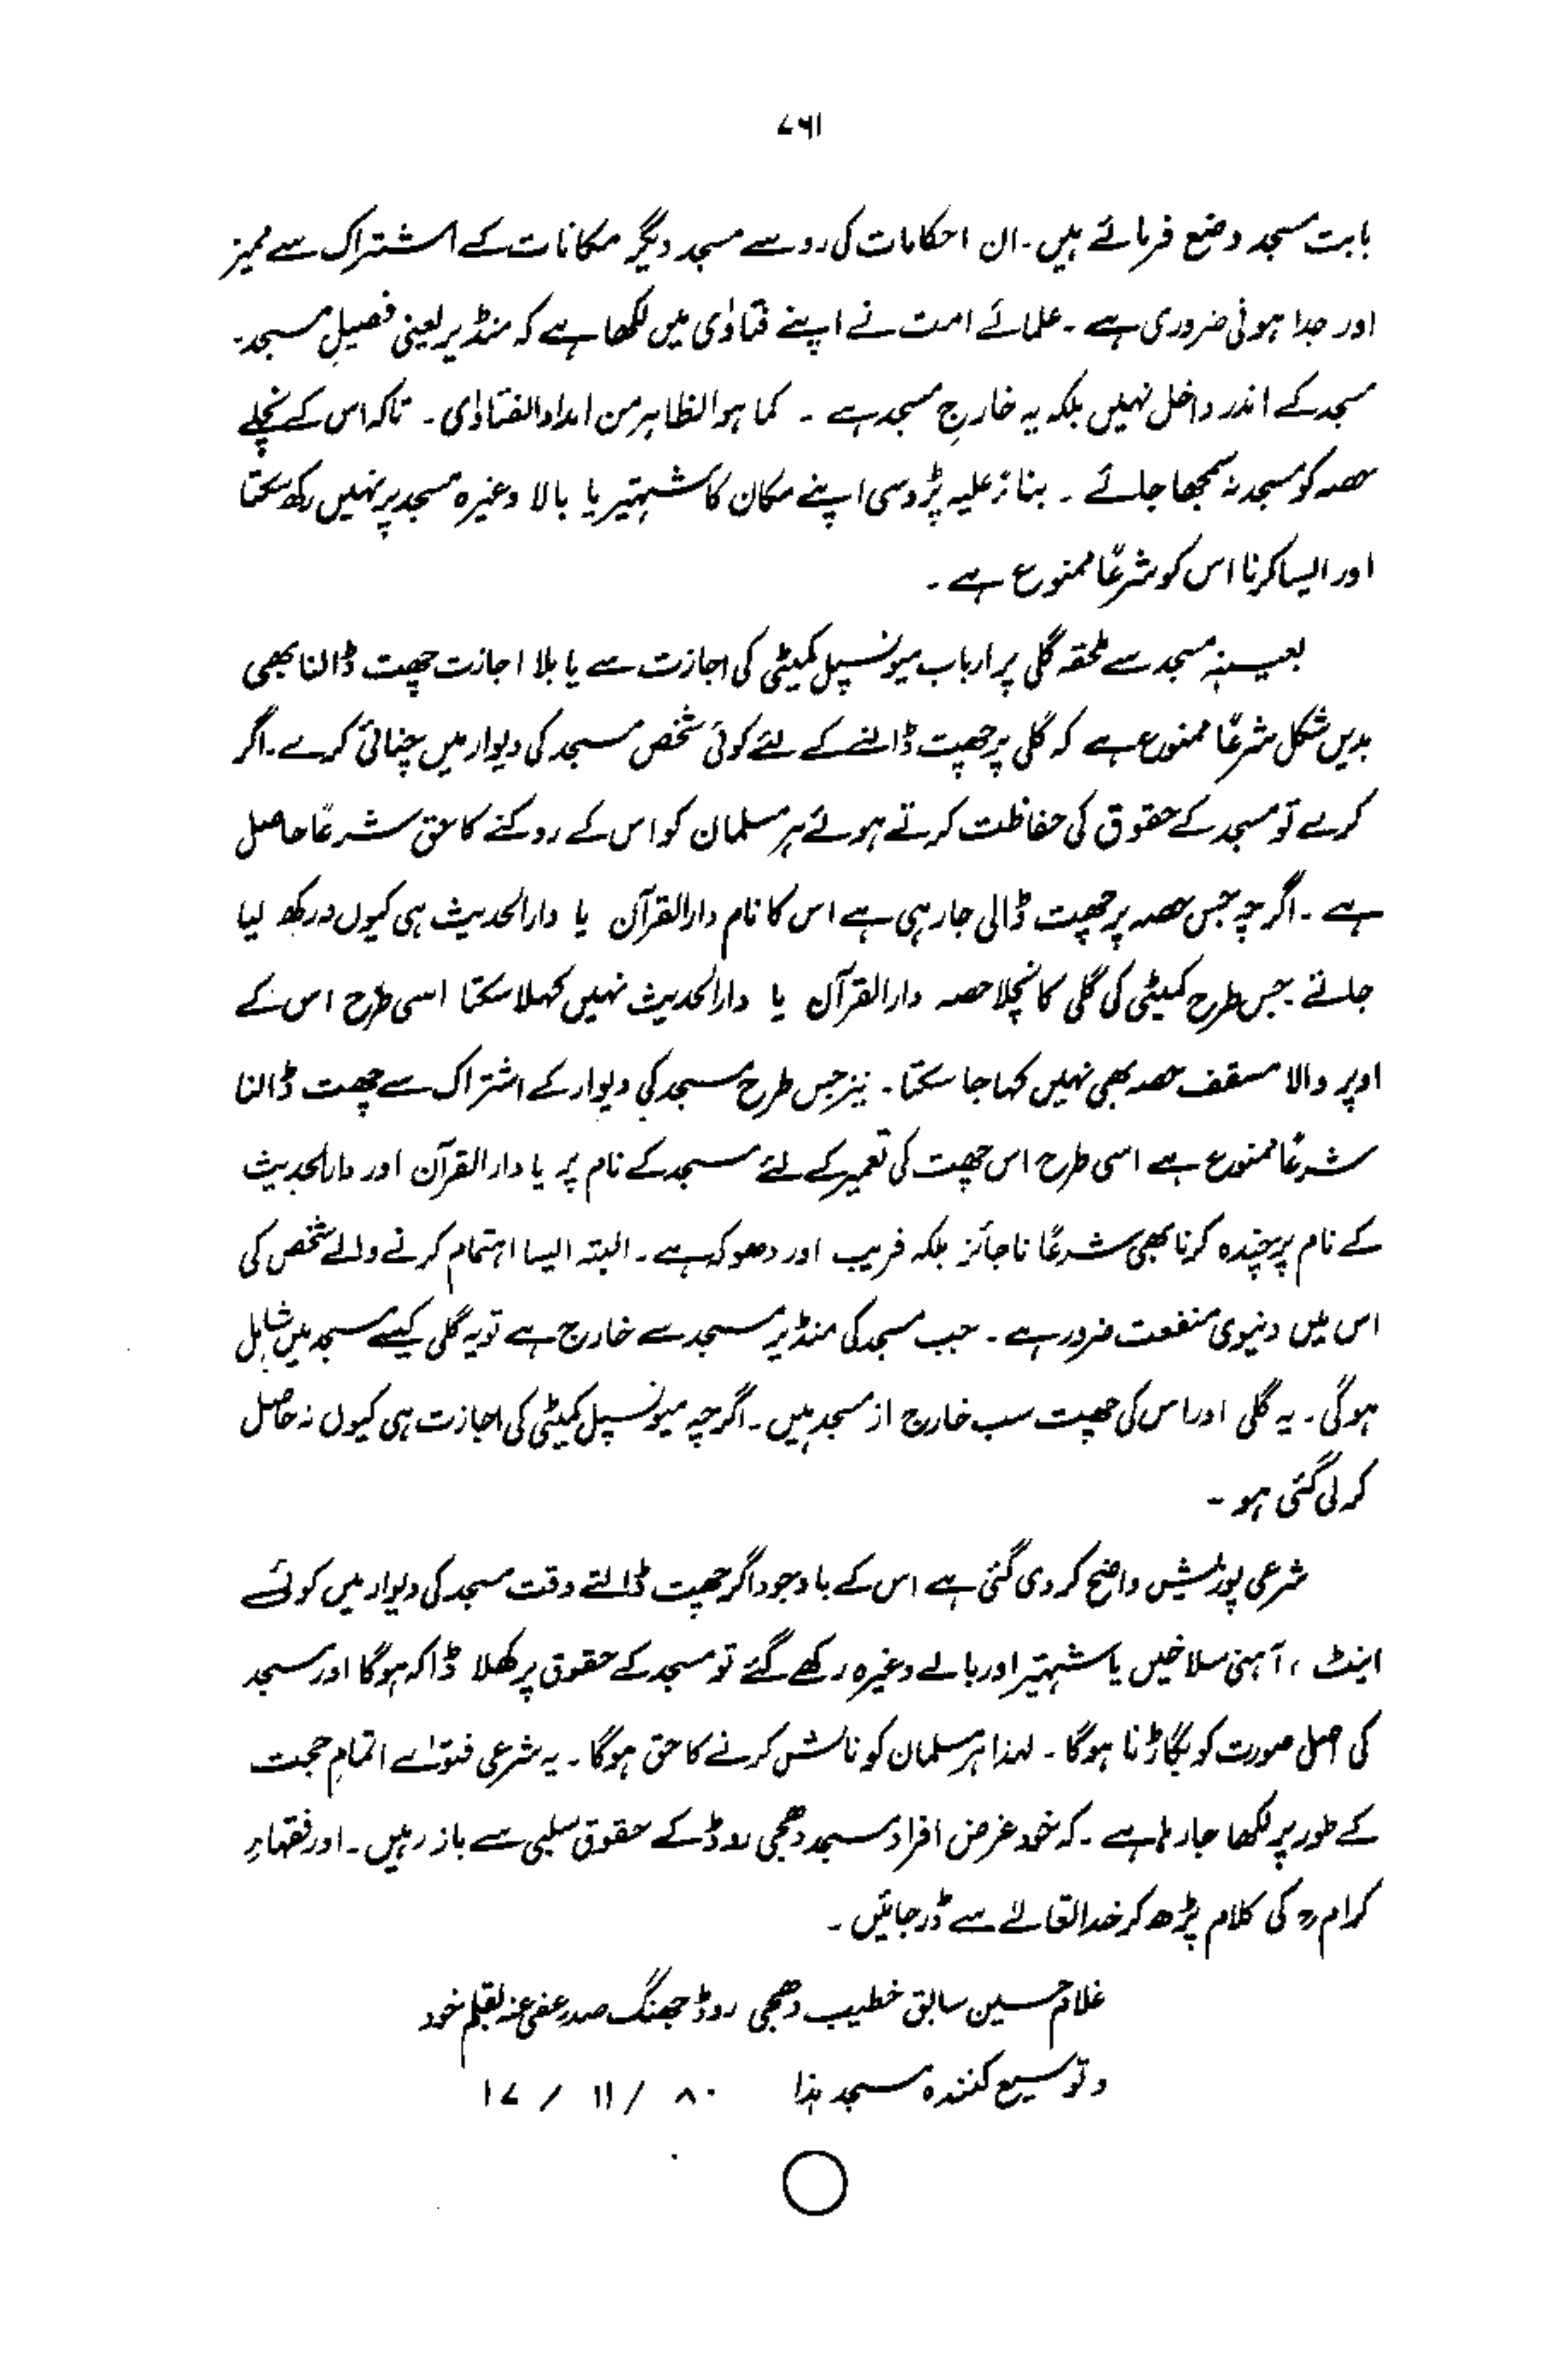 ۷۶۱
بابت مسجد وضع فرمائے ہیں۔ ان احکامات کی رو سے مسجد دیگر مکانات کے اشتراک سے ممیز
اور جدا ہونی ضروری ہے ۔ علمائے امت نے اپنے فتاوٰی میں لکھا ہے کہ منڈیر یعنی فصیلِ مسجد۔
مسجد کے اندر داخل نہیں بلکہ یہ خارجِ مسجد ہے ۔ کما ہو الظاہر من امداد الفتاوٰی ۔ تاکہ اس کے نچلے
حصہ کو مسجد نہ سمجھا جائے ۔ بناءً علیہ پڑوسی اپنے مکان کا شہتیر یا بالا وغیرہ مسجد پر نہیں رکھ سکتا
اور ایسا کرنا اس کو شرعًا ممنوع ہے ۔
بعینہٖ مسجد سے ملحقہ گلی پر ارباب میونسپل کمیٹی کی اجازت سے یا بلا اجازت چھت ڈالنا بھی
بدیں شکل شرعًا ممنوع ہے کہ گلی پر چھت ڈالنے کے لئے کوئی شخص مسجد کی دیوار میں چنائی کرے۔ اگر
کرے تو مسجد کے حقوق کی حفاظت کرتے ہوئے ہر مسلمان کو اس کے روکنے کا حق شرعًا حاصل
ہے ۔ اگرچہ جس حصہ پر چھت ڈالی جارہی ہے اس کا نام دارالقرآن یا دارالحدیث ہی کیوں نہ رکھ لیا
جائے ۔ جس طرح کمیٹی کی گلی کا نچلا حصہ دارالقرآن یا دارالحدیث نہیں کہلا سکتا اسی طرح اس کے
اوپر والا مسقف حصہ بھی نہیں کہا جا سکتا ۔ نیز جس طرح مسجد کی دیوار کے اشتراک سے چھت ڈالنا
شرعًا ممنوع ہے اسی طرح اس چھت کی تعمیر کے لئے مسجد کے نام پر یا دارالقرآن اور دارالحدیث
کے نام پر چندہ کرنا بھی شرعًا ناجائز بلکہ فریب اور دھوکہ ہے ۔ البتہ ایسا اہتمام کرنے والے شخص کی
اس میں دنیوی منفعت ضرور ہے ۔ جب مسجد کی منڈیر مسجد سے خارج ہے تو یہ گلی کیسے مسجد میں شامل
ہوگی ۔ یہ گلی اور اس کی چھت سب خارج از مسجد ہیں ۔ اگرچہ میونسپل کمیٹی کی اجازت ہی کیوں نہ حاصل
کر لی گئی ہو ۔
شرعی پوزیشن واضح کر دی گئی ہے اس کے باوجود اگر چھت ڈالتے وقت مسجد کی دیوار میں کوئے
اینٹ ، آہنی سلاخیں یا شہتیر اور بالے وغیرہ رکھے گئے تو مسجد کے حقوق پر کھلا ڈاکہ ہوگا اور مسجد
کی اصل صورت کو بگاڑنا ہوگا ۔ لہذا ہر مسلمان کو نالش کرنے کا حق ہوگا ۔ یہ شرعی فتوٰے اتمامِ حجت
کے طور پر لکھا جا رہا ہے ۔ کہ خود غرض افراد مسجد دھجی روڈ کے حقوق سلبی سے باز رہیں ۔ اور فقہاءِ
کرامؒ کی کلام پڑھ کر خدا تعالےٰ سے ڈر جائیں ۔
غلام حسین سابق خطیب دھجی روڈ جھنگ صدر عفی عنہ بقلم خود
و توسیع کنندہ مسجد ہذا ۸۰ / ۱۱ / ۱۷